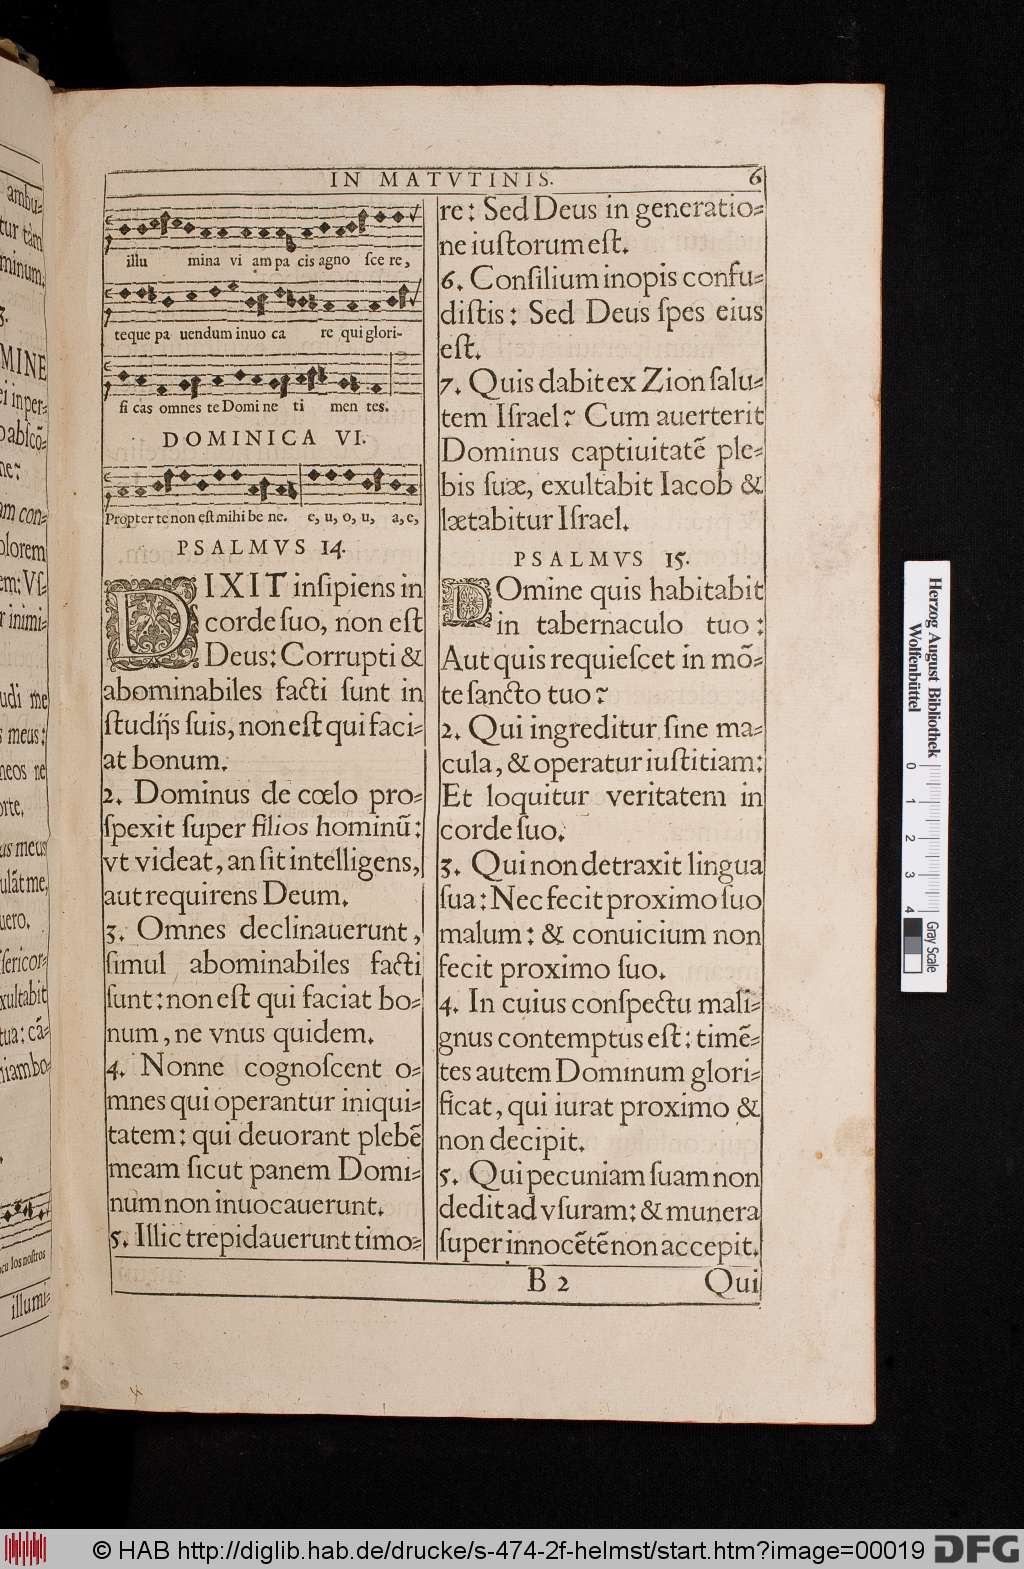 IN MATVTINIS. 6
illu mina vi am pa cis agno ſce re,
teque pa uendum inuo ca re qui glori-
fi cas omnes te Domi ne ti men tes.
DOMINICA VI.
Propter te non eſt mihi be ne. e, u, o, u, a, e,
PSALMVS 14.
DIXIT inſipiens in
corde ſuo, non eſt
Deus: Corrupti &
abominabiles facti ſunt in
ſtudijs ſuis, non eſt qui faci-
at bonum.
2. Dominus de cœlo pro-
ſpexit ſuper filios hominũ:
vt videat, an ſit intelligens,
aut requirens Deum.
3. Omnes declinauerunt,
ſimul abominabiles facti
ſunt: non eſt qui faciat bo-
num, ne vnus quidem.
4. Nonne cognoſcent o-
mnes qui operantur iniqui-
tatem: qui deuorant plebẽ
meam ſicut panem Domi-
num non inuocauerunt.
5. Illic trepidauerunt timo-
re: Sed Deus in generatio-
ne iuſtorum eſt.
6. Conſilium inopis confu-
diſtis: Sed Deus ſpes eius
eſt.
7. Quis dabit ex Zion ſalu-
tem Iſrael? Cum auerterit
Dominus captiuitatẽ ple-
bis ſuæ, exultabit Iacob &
lætabitur Iſrael.
PSALMVS 15.
DOmine quis habitabit
in tabernaculo tuo:
Aut quis requieſcet in mõ-
te ſancto tuo?
2. Qui ingreditur ſine ma-
cula, & operatur iuſtitiam:
Et loquitur veritatem in
corde ſuo.
3. Qui non detraxit lingua
ſua: Nec fecit proximo ſuo
malum: & conuicium non
fecit proximo ſuo.
4. In cuius conſpectu mali-
gnus contemptus eſt: timẽ-
tes autem Dominum glori-
ficat, qui iurat proximo &
non decipit.
5. Qui pecuniam ſuam non
dedit ad vſuram: & munera
ſuper innocẽtẽ non accepit.
B 2 Qui
ambu-
tur tàm
minum.
3.
MINE
ei inper-
abſcõ-
ne?
am con-
olorem
em: Vſ-
r inimi-
udi me
s meus:
neos ne
orte,
us meus
ulãt me,
uero.
ſericor-
xultabit
tua: cã-
iambo-
cu los noſtros
illumi-
Herzog August Bibliothek
Wolfenbüttel
0 1 2 3 4
Gray Scale
© HAB http://diglib.hab.de/drucke/s-474-2f-helmst/start.htm?image=00019 DFG